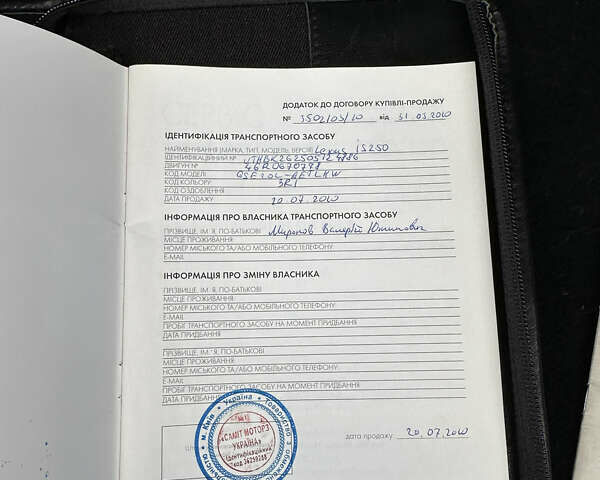 ДОДАТОК ДО ДОГОВОРУ КУПІВЛІ-ПРОДАЖУ
№ 3502/03/10 від 31.03.2010
ІДЕНТИФІКАЦІЯ ТРАНСПОРТНОГО ЗАСОБУ
НАЙМЕНУВАННЯ (МАРКА, ТИП, МОДЕЛЬ, ВЕРСІЯ) Lexus iS250
ІДЕНТИФІКАЦІЙНИЙ №
ДВИГУН №
КОД МОДЕЛІ
КОД КОЛЬОРУ 3R1
КОД ОЗДОБЛЕННЯ
ДАТА ПРОДАЖУ 20.07.2010
ІНФОРМАЦІЯ ПРО ВЛАСНИКА ТРАНСПОРТНОГО ЗАСОБУ
ПРІЗВИЩЕ, ІМ´Я, ПО-БАТЬКОВІ Миронов Валерій
МІСЦЕ ПРОЖИВАННЯ
НОМЕР МІСЬКОГО ТА/АБО МОБІЛЬНОГО ТЕЛЕФОНУ
E-MAIL
ІНФОРМАЦІЯ ПРО ЗМІНУ ВЛАСНИКА
ПРІЗВИЩЕ, ІМ´Я, ПО-БАТЬКОВІ
МІСЦЕ ПРОЖИВАННЯ
НОМЕР МІСЬКОГО ТА/АБО МОБІЛЬНОГО ТЕЛЕФОНУ
E-MAIL
ПРОБІГ ТРАНСПОРТНОГО ЗАСОБУ НА МОМЕНТ ПРИДБАННЯ
ДАТА ПРИДБАННЯ
ПРІЗВИЩЕ, ІМ´Я, ПО-БАТЬКОВІ
МІСЦЕ ПРОЖИВАННЯ
НОМЕР МІСЬКОГО ТА/АБО МОБІЛЬНОГО ТЕЛЕФОНУ
E-MAIL
ПРОБІГ ТРАНСПОРТНОГО ЗАСОБУ НА МОМЕНТ ПРИДБАННЯ
ДАТА ПРИДБАН
м. Київ * Україна * Товариство з
«САМІТ МОТОРЗ
УКРАЇНА»
Ідентифікаційний
код 34259288
дата продажу 20.07.2010